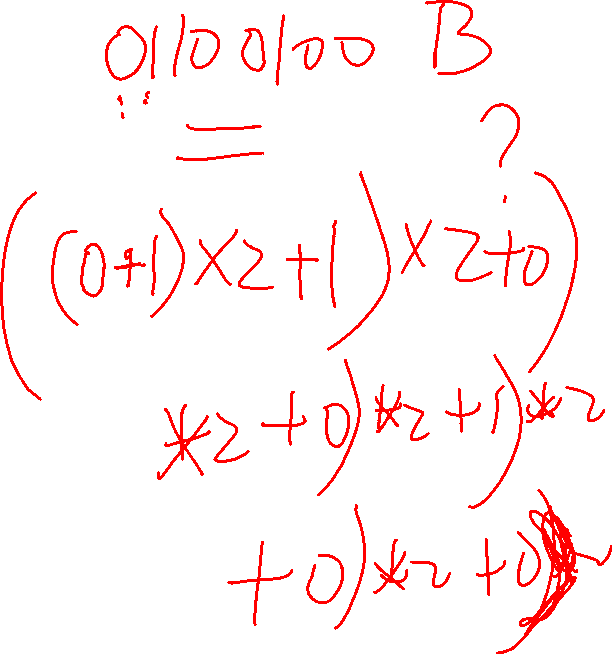 01100100 B
=
?
((0+1)×2+1)×2+0)
*2+0)*2+1)*2
+0)*2+0)